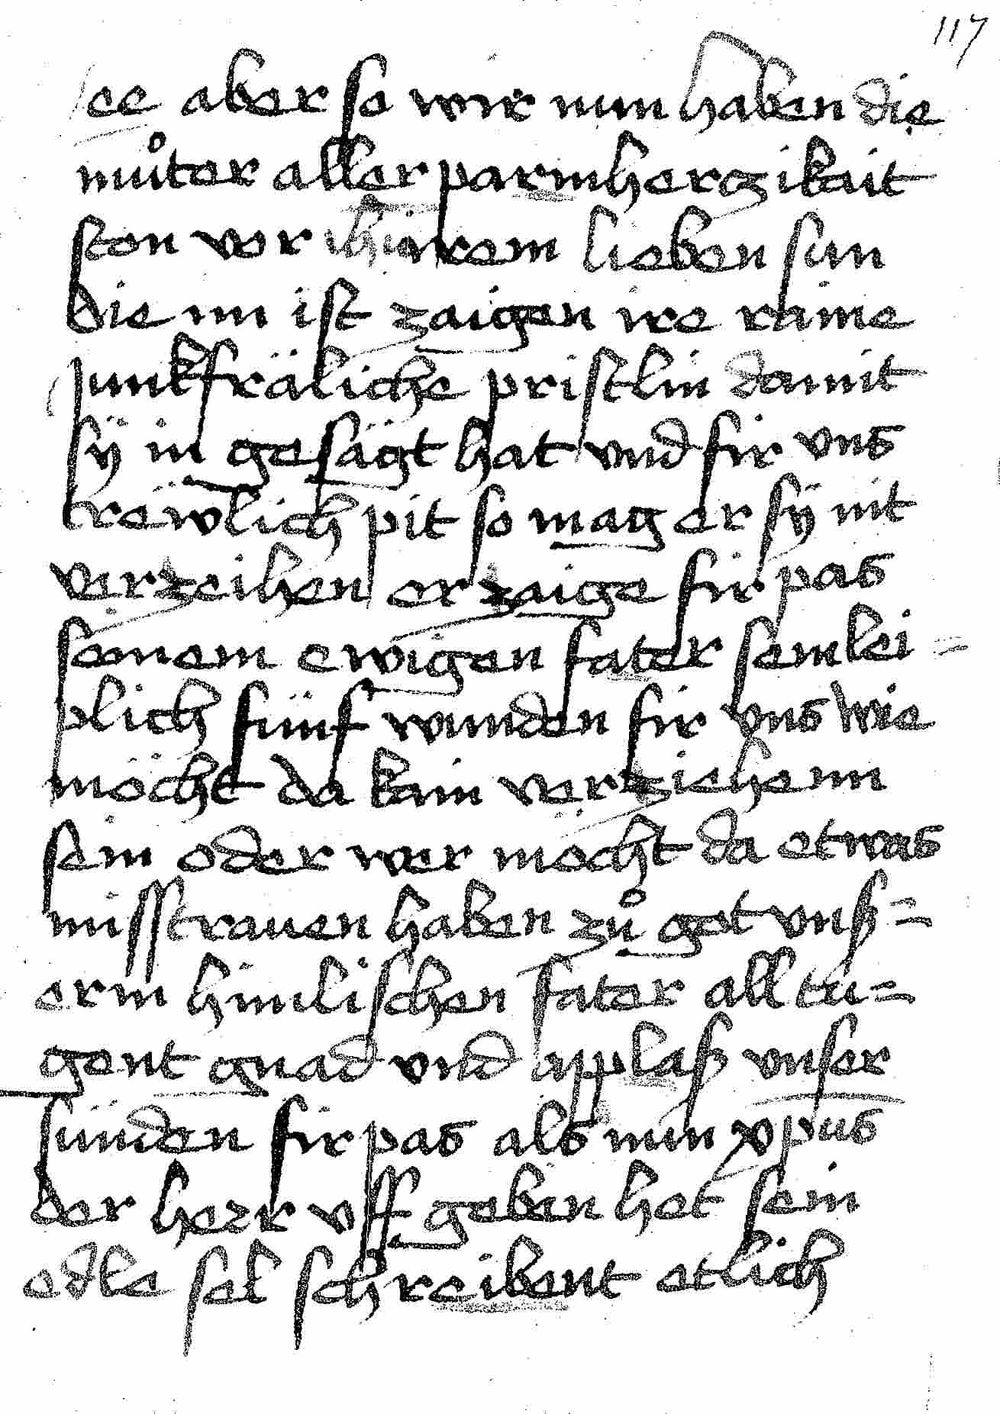 117
ee aber so wir nun haben die
muͦter aller parmherczikait
ston vor irem lieben sun
die im ist zaigen ire raine
junkfräliche pristlin damit
sÿ in gesägt hat vnd fir vns
trëwlich pit so mag er sÿ nit
verzeihen er zaige fir pas
seinem ewigen fater sein lei=
plich fünf wunden fir vns wie
möcht da kain verziehenn
sein oder wer möcht da etwas
misstrauen haben zuͦ got vnß=
erm himlischen fater all tu=
gent gnad vnd applaß vnser
sünden fir pas als nun xpus
der herr vff geben het sein
edle sel schreibent etlich